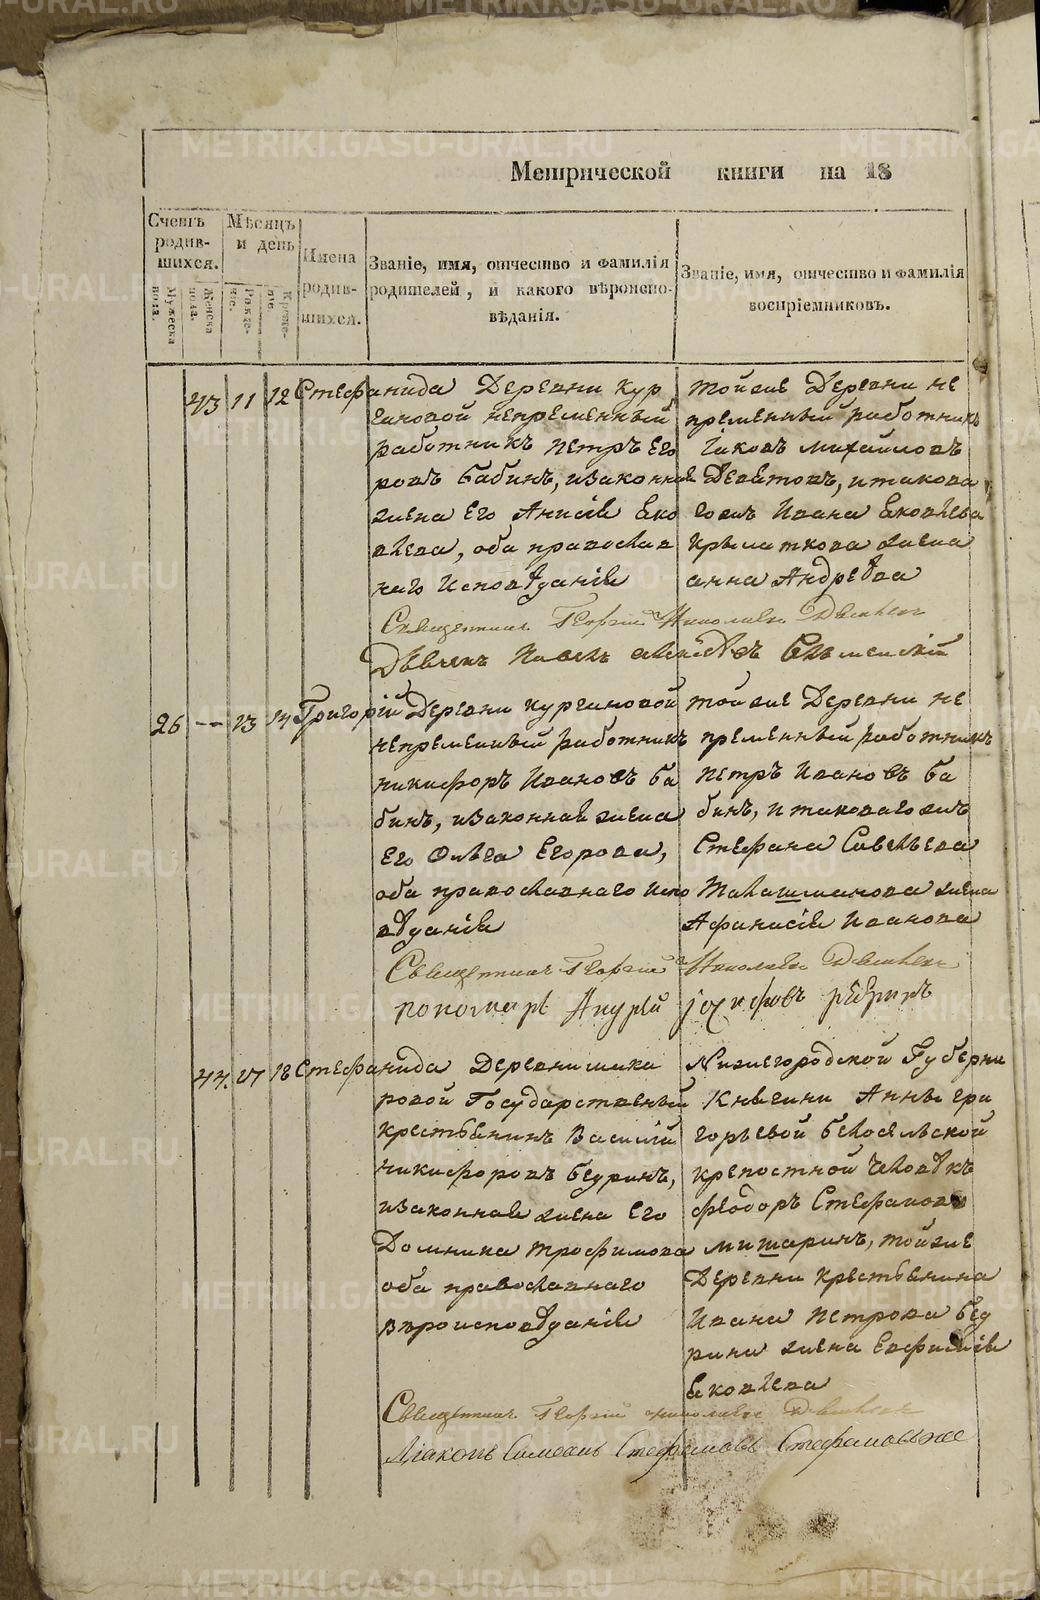 Метрической книги на 18
Счетъ родив-шихся.
Мѣсяцъ и день
Имена родив-шихся.
Званіе, имя, отчество и фамилія родителей, и какого вѣроиспо-вѣданія.
Званіе, имя, отчество и фамилія воспріемниковъ.
Мужеска пола.
Женска пола.
Рожде-ніе.
Креще-ніе.
43 11 12 Стефанида
Деревни Кур
гановой непременный
работникъ Петръ Его
ровъ Бабинъ, изаконная
жена Его Анисія Еко
влева, оба православ
наго Исповѣданія
тойже Деревни не
пременный работникъ
Іаковъ Михайловъ
Девятовъ, итакова
гожъ Ивана Яковлева
Крылаткова жена
анна Андреева
Священникъ Георгій Николаевъ
Дьячекъ Павелъ
26 -- 13 14 Григорій
Деревни Кургановой
непременный работникъ
никифоръ Ивановъ Ба
бинъ, изаконная жена
Его Ольга Егорова,
оба православнаго Испо
вѣданія
тойже Деревни не
пременный работникъ
Петръ Ивановъ Ба
бинъ, итаковагожъ
Стефана Савельева
Талашманова жена
Афанасія Иванова
Священникъ Георгій Николаевъ
пономарь Андрей іосифовъ
44. 17 18 Стефанида
Деревни мака
ровой Государственный
крестьянинъ Василій
никифоровъ Бедринъ,
изаконная жена Его
Домника трофимова
оба православнаго
вѣроисповѣданія
Нижегородской Губерни
Княгини Анны гри
горьевой белосельской
крепостной человѣкъ
феодоръ Стефановъ
мишаринъ, тойже
Деревни крестьянина
Ивана Петрова Бед
рина жена Евфимія
Яковлева
Священникъ Георгій Николаевъ
Діаконъ Симеонъ Стефановъ
METRIKI.GASO-URAL.RU